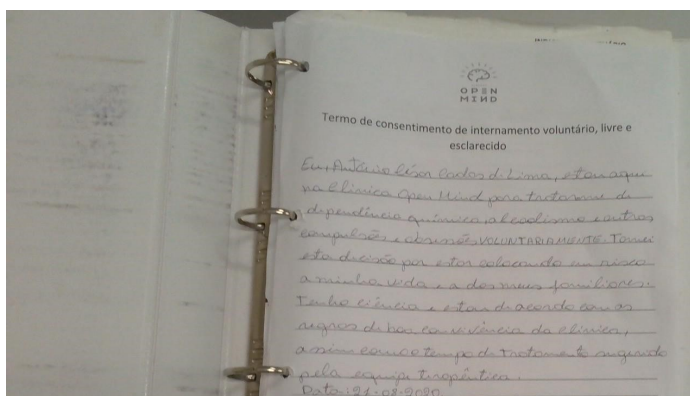 OPEN
MIND
Termo de consentimento de internamento voluntário, livre e
esclarecido
Eu, Antônio César Carlos de Lima, estou aqui
na Clínica Open Mind para tratamento de
dependência química, alcoolismo e outras
compulsões e obsessões VOLUNTARIAMENTE. Tomei
esta decisão por estar colocando em risco
a minha vida e a dos meus familiares.
Tenho ciência e estou de acordo com as
regras de boa convivência da clínica,
assim como o tempo de tratamento sugerido
pela equipe terapêutica.
Data: 21-02-2020